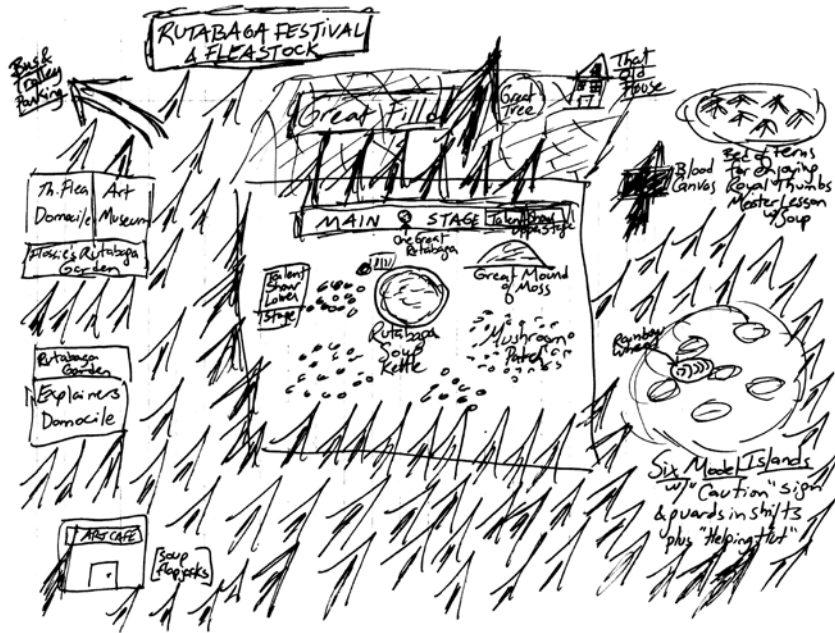 RUTABAGA FESTIVAL
& FLEASTOCK
Bus &
Trolley
Parking
Great Fill
Great
Tree
That
Old
House
Bed of Ferns
for enjoying
Royal Thumbs
Master Lesson
w/ Soup
Blood
Canvas
Th. Flea
Domocile
Art
Museum
Flossie's Rutabaga
Garden
MAIN STAGE
Talent Show
Upper Stage
One Great
Rutabaga
Talent
Show
Lower
Stage
Great Mound
of Moss
Rutabaga
Soup
Kettle
Mushroom
Patch
Rainbow
Wheel
Rutabaga
Garden
Explainers
Domocile
Six Model Islands
w/ "Caution" sign
& guards in shifts
plus "Helping Hut"
ART CAFE
Soup
flapjacks